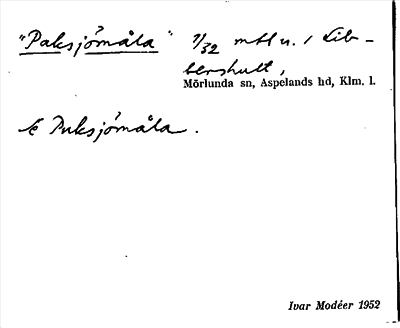 "Paksjömåla" 7/32 mtl u. / Lib-
bershult,
Mörlunda sn, Aspelands hd, Klm. l.
Se Puksjömåla.
Ivar Modéer 1952